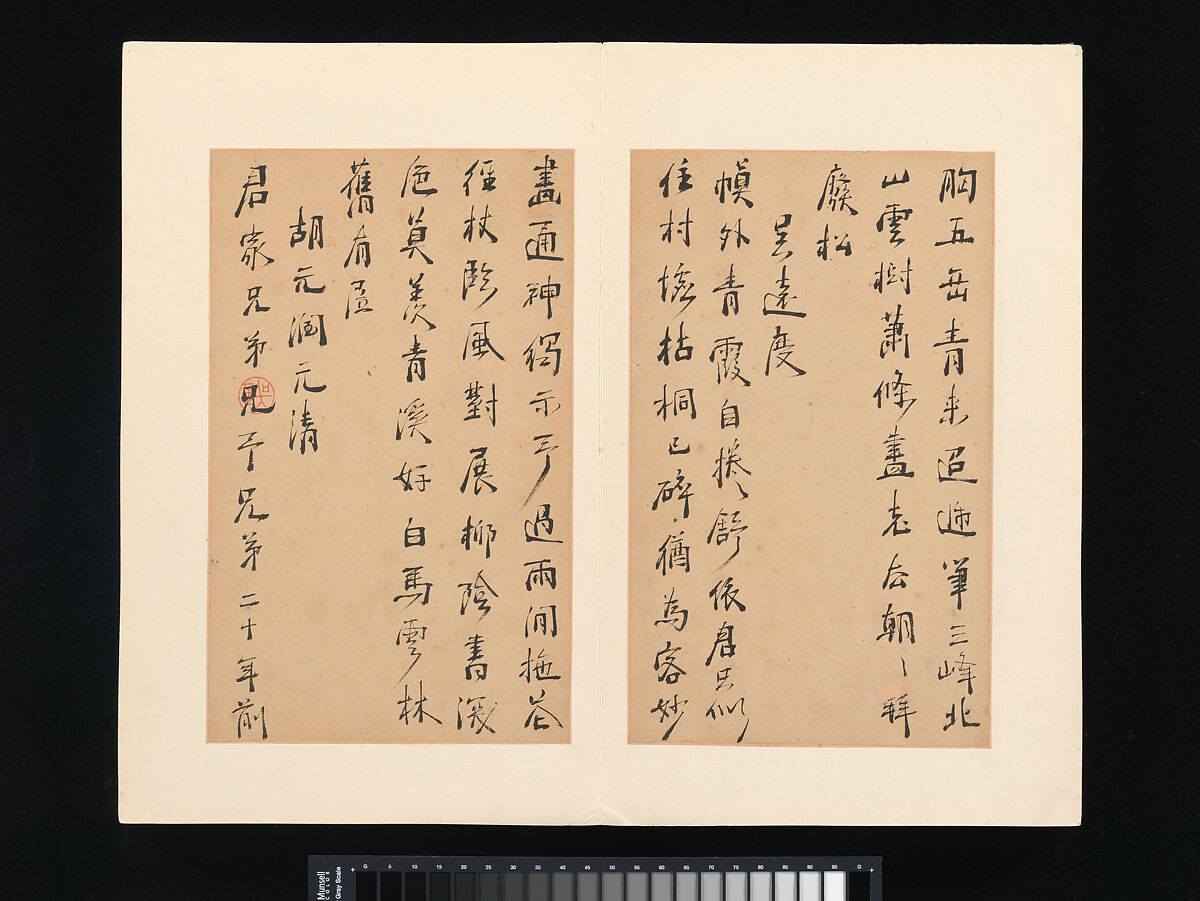 胸五岳青来迢遞筆三峰北
山雲樹蕭條盡老去朝々拜
廢松
吴遠度
幀外青霞自捲舒依君只似
住村墟枯桐已碎猶為客妙
畫通神獨示予過雨閒拖花
徑杖臨風對展柳陰書淺
色莫羨青溪好白馬雲林
舊有廬
胡元潤元清
君家兄弟兄予兄弟二十年前